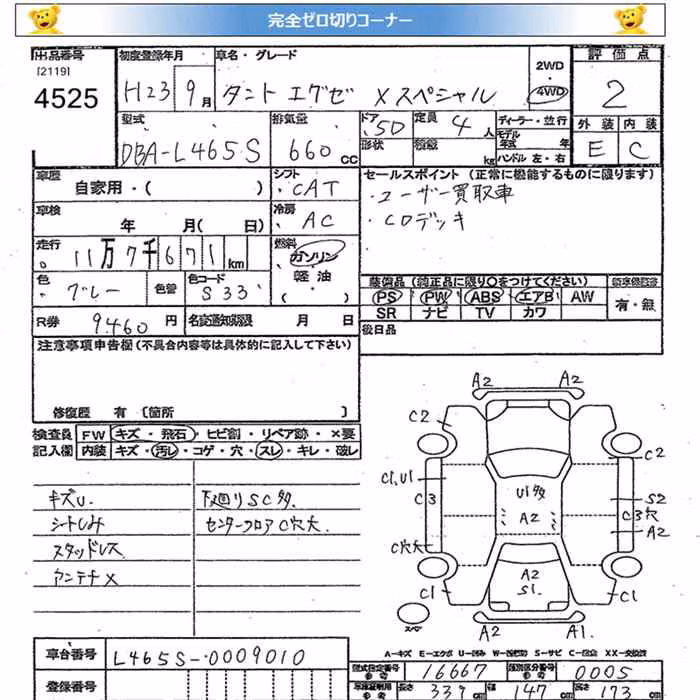 完全ゼロ切りコーナー
出品番号 初度登録年月 車名・グレード 2WD・4WD 評価点
[2119]
4525 H23 9月 タント エグゼ Xスペシャル 2
型式 排気量 ドア 定員 ディーラー・並行 外装 内装
DBA-L465S 660cc 5D 4人 モデル年式 年 E C
形状 積載 kg ハンドル 左・右
車歴 自家用・( ) シフト CAT セールスポイント (正常に機能するものに限ります)
・ユーザー買取車
車検 年 月( 日) 冷房 AC ・CDデッキ
走行 11万7千671km 燃料 ガソリン
軽油
( )
色 グレー 色替 色コード S33 装備品 (純正品に限り○をつけてください)
PS PW ABS エアB AW 有・無
R券 9460円 月 日 SR ナビ TV カワ
後日品
注意事項申告欄(不具合内容等は具体的に記入して下さい)
修復歴 有 [箇所 ]
検査員 FW キズ・飛石・ヒビ割・リペア跡・×要
記入欄 内装 キズ・汚レ・コゲ・穴・スレ・キレ・破レ
キズU. 下廻りSC多
シートしみ センターフロアC穴大
スタッドレス
アンテナX
A2 A2
C2
C2
C1,U1
C3
U1多
A2
S2
C3穴
A2
C穴大
C1
A2
S1.
C1
スペア
A2 A1
A-キズ E-エクボ U-凹み W-補修跡 S-サビ C-腐食 XX-交換済
車台番号 L465S-0009010 型式指定番号 参考 16667 類別区分番号 参考 0005
登録番号 参考 長さ 339cm 幅 147cm 高さ 173cm